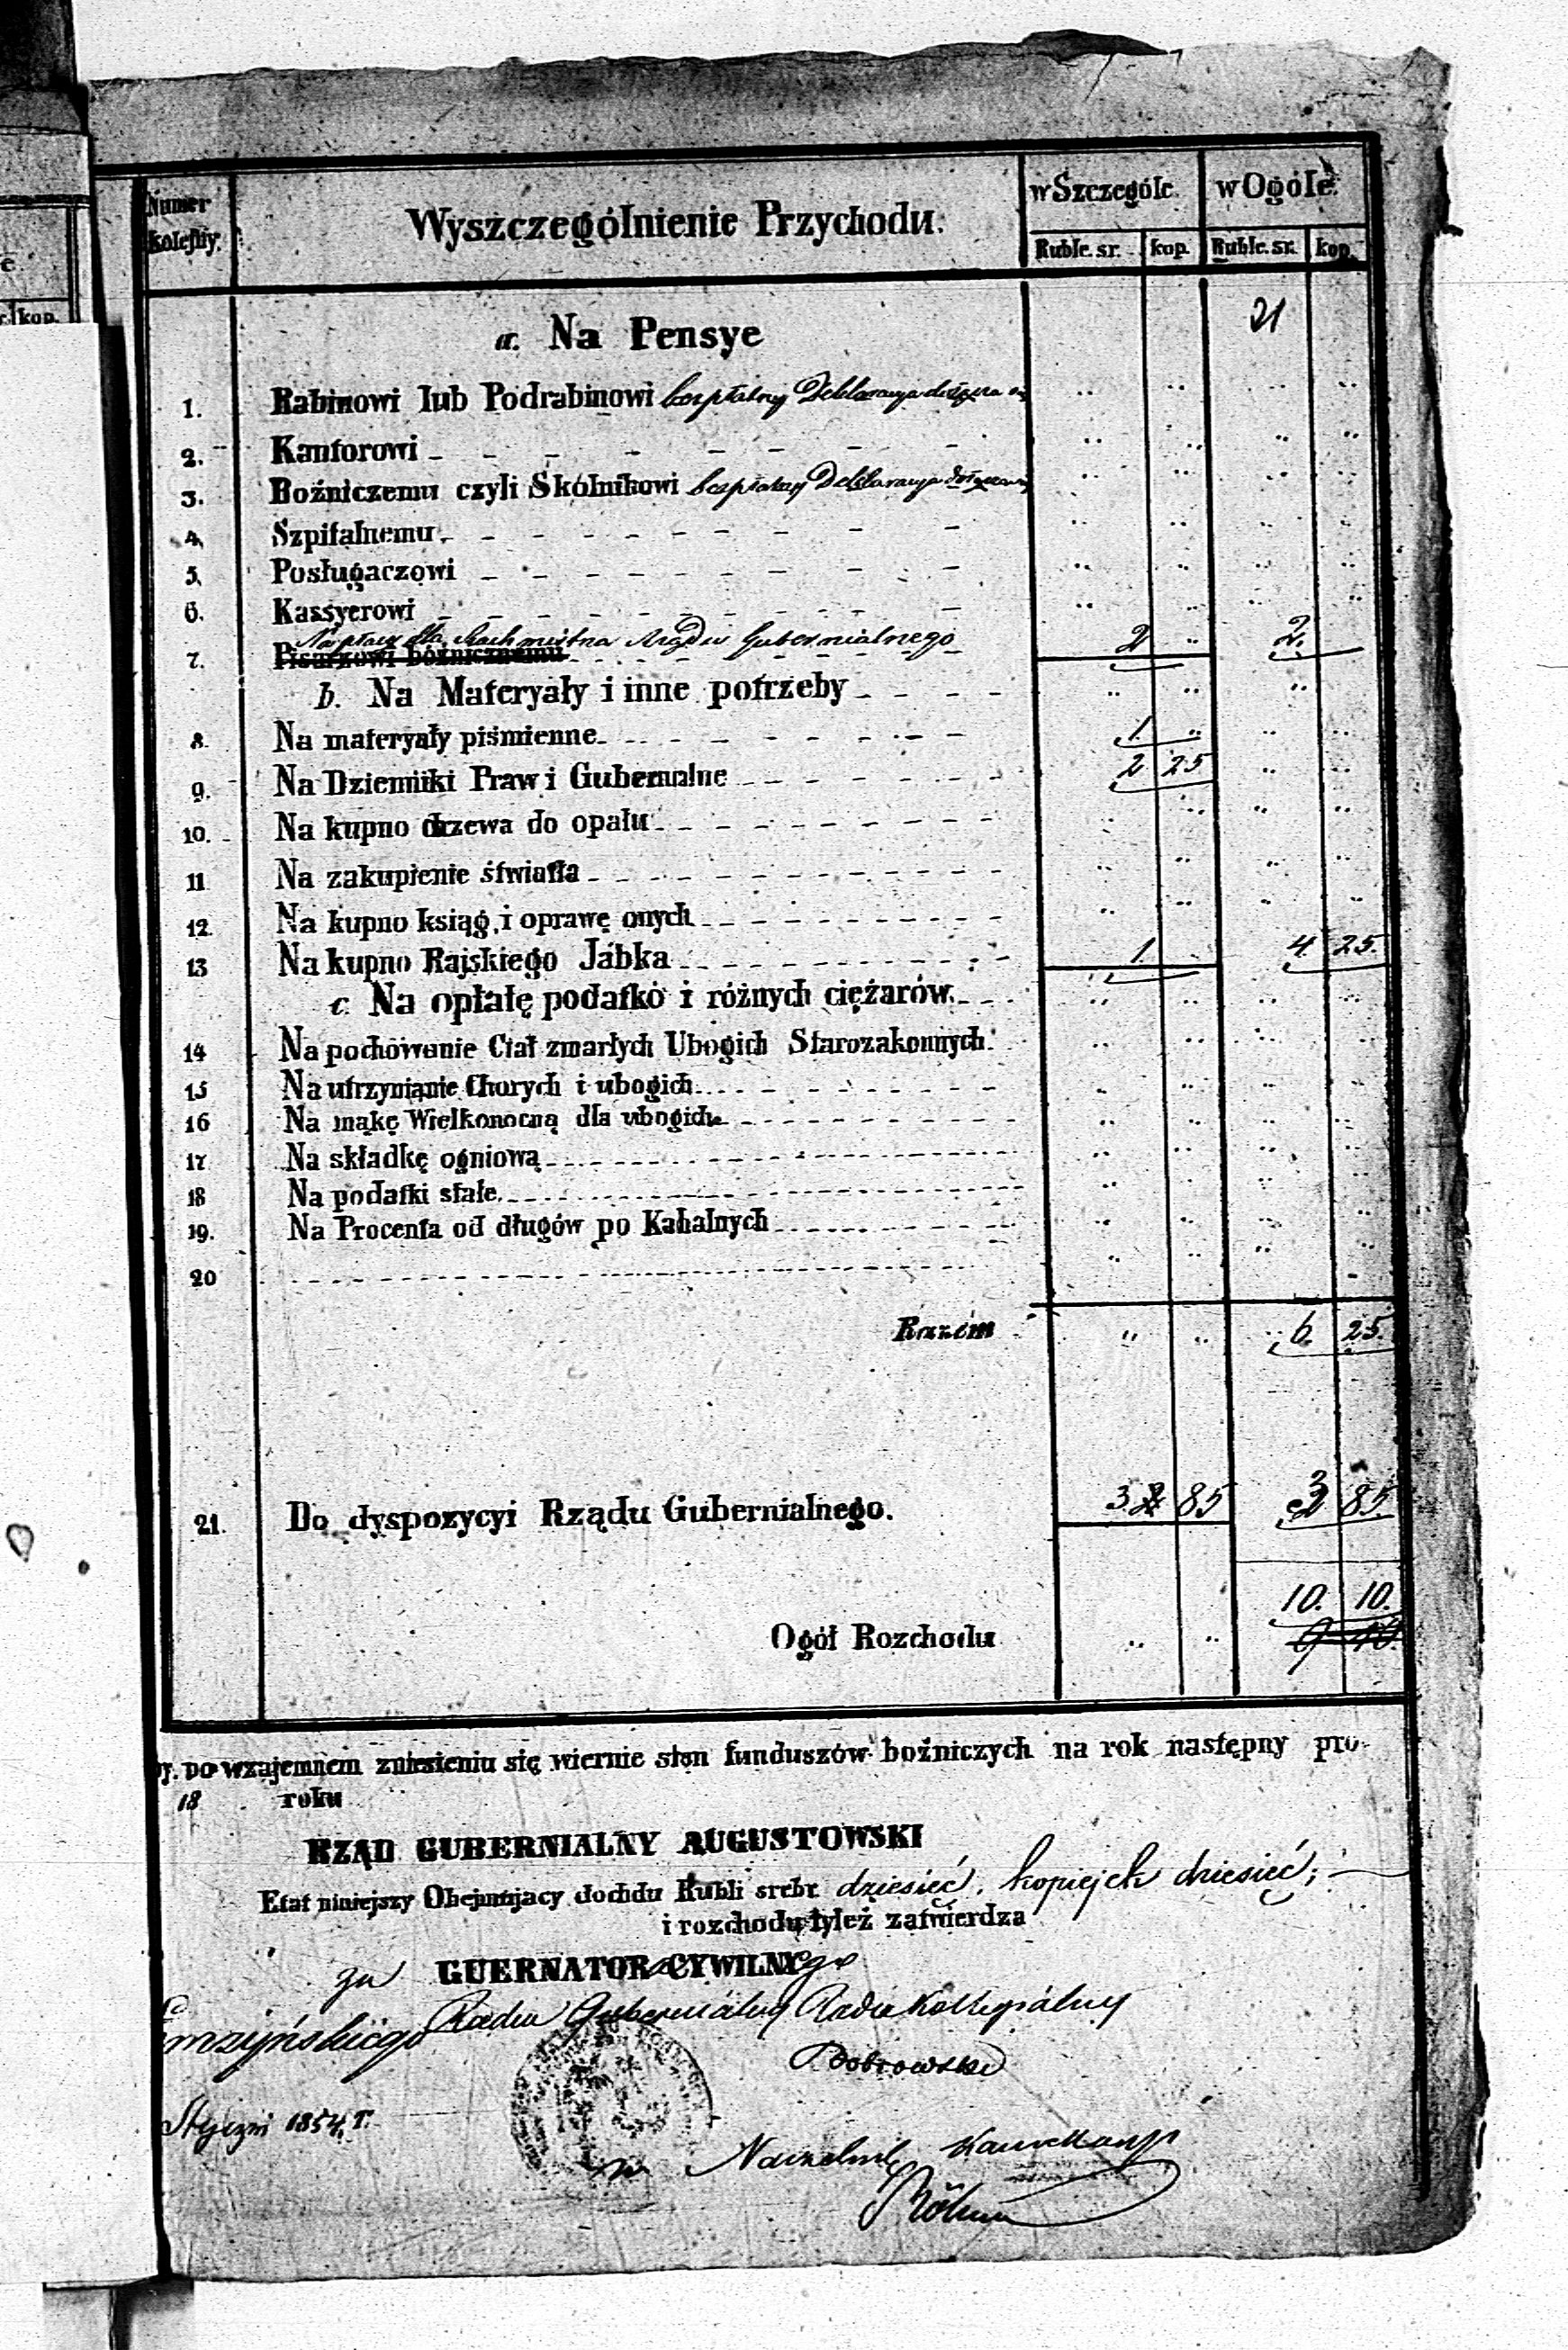 Numer kolejny. Wyszczególnienie Przychodu. w Szczególe. w Ogóle.
Ruble. sr. kop. Ruble. sr. kop.
r. kop.
21
a. Na Pensye
1. Rabinowi lub Podrabinowi bezpłatny Deklaracya dołącza się
2. Kantorowi
3. Boźniczemu czyli Skólnikowi bezpłatny Deklaracya
4. Szpitalnemu
5. Posługaczowi
6. Kassyerowi
Na płacę dla Rachmistrza Rządu Gubernialnego
7. Pisarzowi bóźnicznemu 2 2.
b. Na Materyały i inne potrzeby
8. Na materyały piśmienne 1.
9. Na Dzienniki Praw i Gubernialne 2 25
10. Na kupno drzewa do opału
11 Na zakupienie światła
12 Na kupno ksiąg, i oprawę onych
13 Na kupno Rajskiego Jabka 1 4 25.
c. Na opłatę podatkó i różnych ciężarów.
14 Na pochowanie Ciał zmarłych Ubogich Starozakonnych.
15 Na utrzymianie Chorych i ubogich
16 Na mąkę Wielkonocną dla ubogich
17 Na składkę ogniową
18 Na podatki stałe.
19. Na Procenta od długów po Kahalnych
20
Razem 6. 25.
21. Do dyspozycyi Rządu Gubernialnego. 3 85 3 85.
10. 10.
Ogół Rozchodu 9 10.
y. po wzajemnem zniesieniu się wiernie stan funduszów bożniczych na rok następny pro-
18 roku
RZĄD GUBERNIALNY AUGUSTOWSKI
Etat niniejszy Obejmujacy dochdu Rubli srebr dziesięć, kopiejek dziesięć;
i rozchodu tyleż zatwierdza
za GUERNATORA CYWILNego
Radca Gubernialny Radca Kollegialny
Dobrowolski
Styczni 1854 r.
Naczelnik Kancellaryi
Böhm